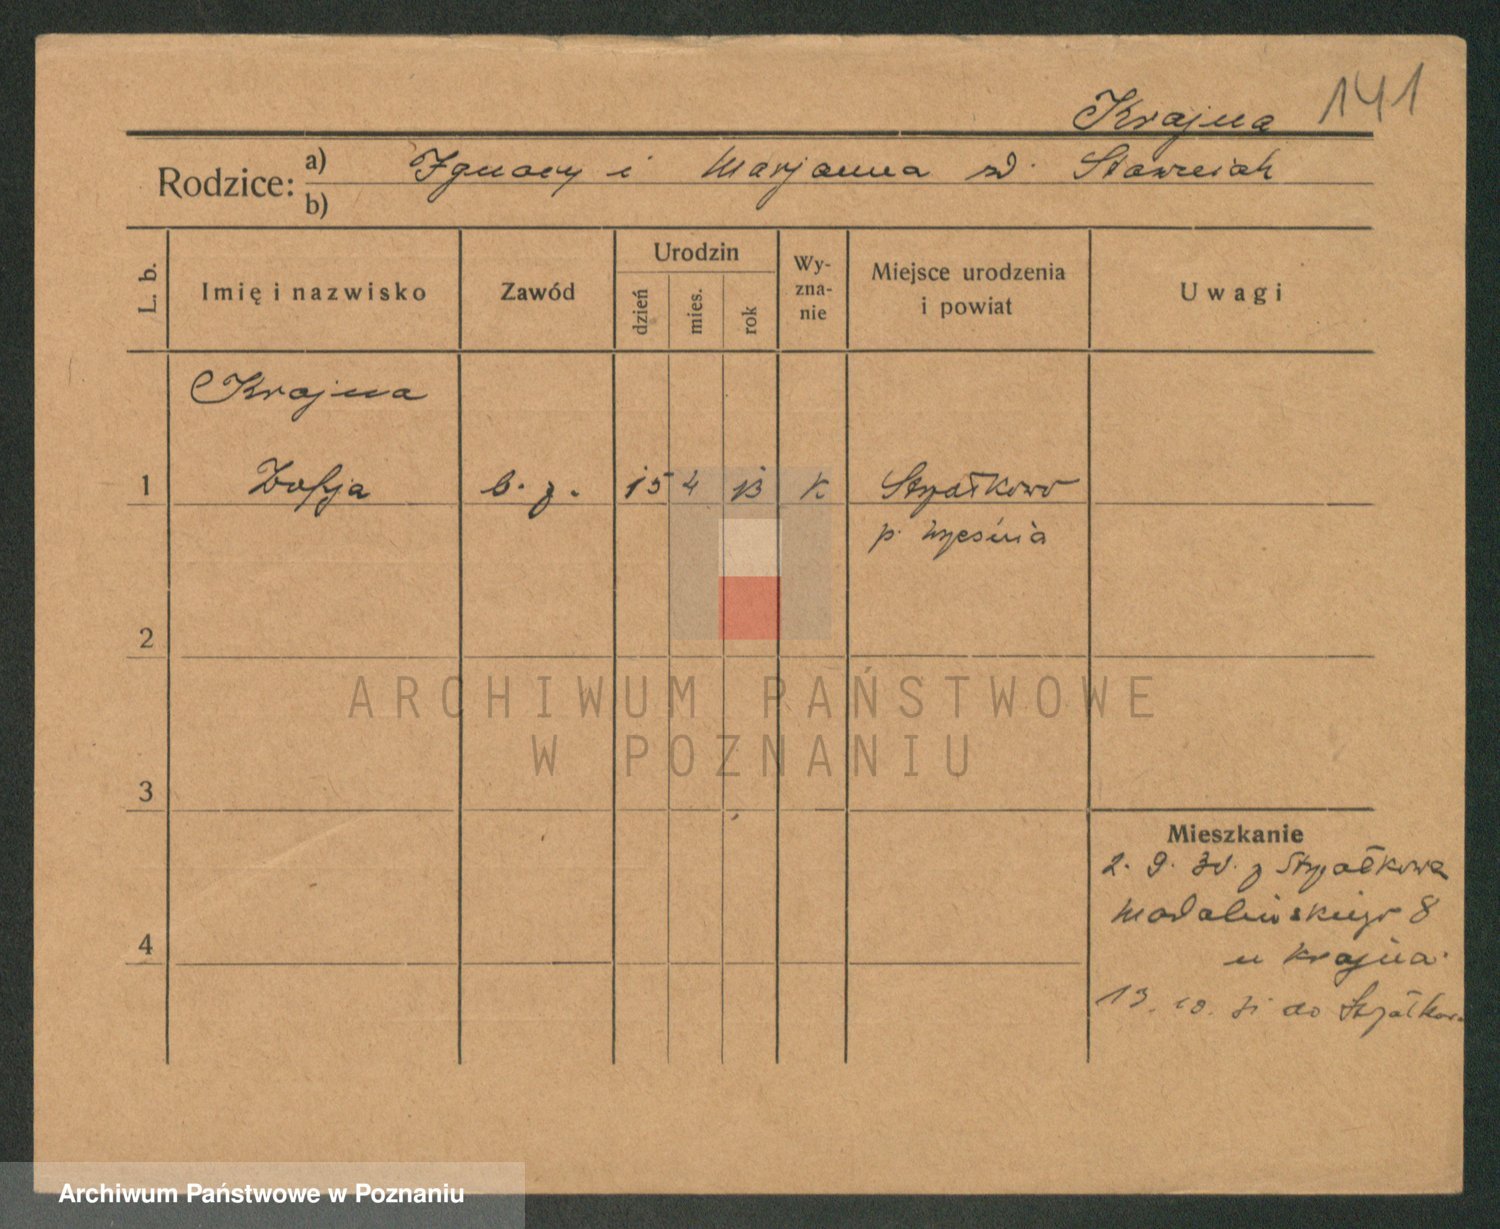 Krajna 141
Rodzice: a) Ignacy i Marjanna z d. Stawreiak
b)
L. b.
Imię i nazwisko
Zawód
Urodzin
dzień
mies.
rok
Wy-
zna-
nie
Miejsce urodzenia
i powiat
Uwagi
Krajna
1 Zofja b. z. 15 4 13 k Strzałkowo
p. Września
2
ARCHIWUM PAŃSTWOWE
W POZNANIU
3
Mieszkanie
2. 9. 30. z Strzałkowa
Madalińskiego 8
u Krajna.
4
13. 10. 31 do Strzałkowa
Archiwum Państwowe w Poznaniu